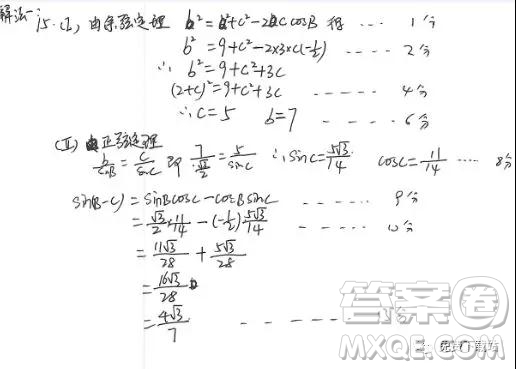 解法一:15.(1) 由余弦定理 b²=a²+c²-2accosB 得 ---- 1分
b²=9+c²-2×3×c(-1/2) ---- 2分
∴ b²=9+c²+3c
(2+c)²=9+c²+3c ---- 4分
∴c=5 b=7 ---- 6分
(Ⅱ) 由正弦定理
b/sinB=c/sinC 即 7/(√3/2)=5/sinC ∴sinC=5√3/14 cosC=11/14 ---- 8分
sin(B-C)=sinBcosC-cosBsinC ----- 9分
=√3/2·11/14-(-1/2)5√3/14 ----- 10分
=11√3/28+5√3/28
=16√3/28
=4√3/7 - - - - - - 分
答案圈
MXQE.COM